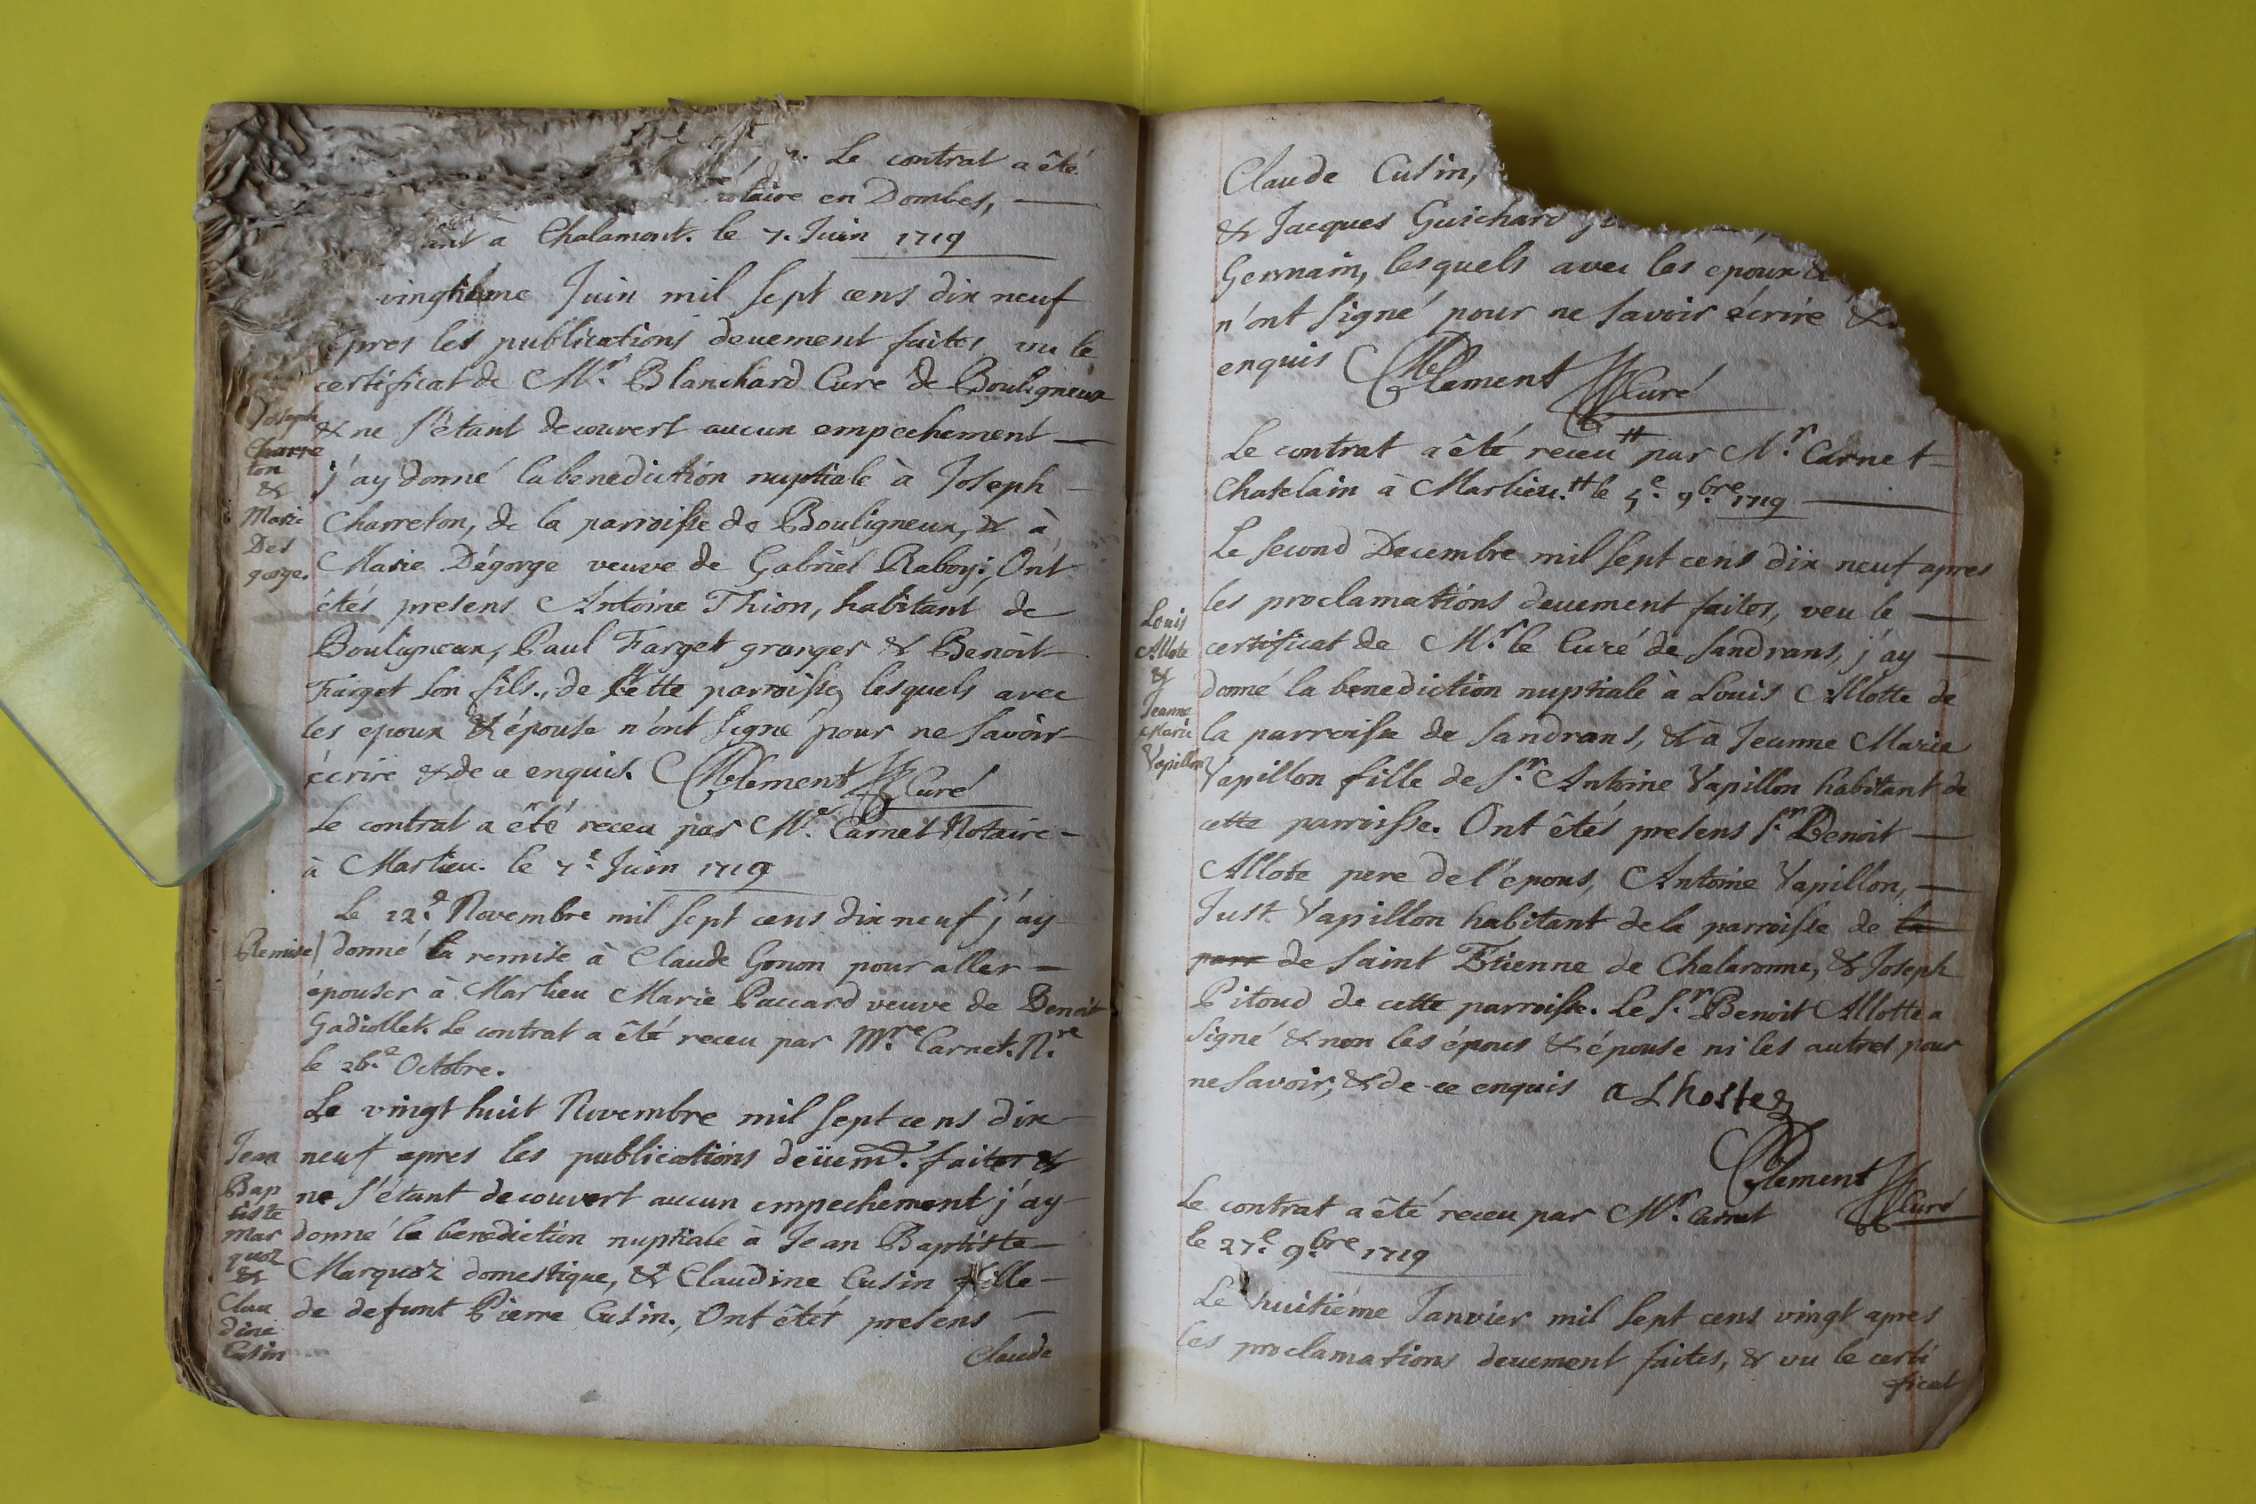 Le contrat a êté
en Dombes,
à Chalamont. le 7. Juin 1719
vingtième Juin mil sept cens dix neuf
apres les publications deuement faites, vu le
certificat de Mr. Blanchard Cure de Bouligneux
& ne s'étant decouvert aucun empechement
j'ay donné la benediction nuptiale à Joseph
Charreton, de la parroisse de Bouligneux, & à
Marie Dégorge veuve de Gabriel Raboy. Ont
étés presens Antoine Thion, habitant de
Bouligneux, Paul Farget granger & Benoit
Farget son fils, de cette parroisse, lesquels avec
les epoux & épouse n'ont signé pour ne savoir
écrire & de ce enquis. Clement Curé
Joseph
Charre
ton
&
Marie
Des
gorge.
Le contrat a êté receu par Me. Carnet Notaire
à Marlieu. le 7e. Juin 1719
Le 22e. Novembre mil sept cens dix neuf j'ay
Remise donné la remise à Claude Gonon pour aller
épouser à Marlieu Marie Paccard veuve de Benoit
Gadiollet. Le contrat a êté receu par Mre. Carnet. N.re
le 26e. Octobre.
Le vingt huit Novembre mil sept cens dix
neuf apres les publications deüemt. faites &
ne s'étant decouvert aucun empechement j'ay
donné la benediction nuptiale à Jean Baptiste
Marquoz domestique, & Claudine Cusin fille
de defunt Pierre Cusin. Ont êtés presens
Claude
Jean
Bap
tiste
Mar
quoz
&
Clau
dine
Cusin
Claude Cusin,
& Jacques Guichard
Germain, lesquels avec les epoux &
n'ont signé pour ne savoir écrire &
enquis Clement Curé
Le contrat a êté receu # par Mr. Carnet
Chatelain à Marlieu. # le 5e. 9bre. 1719
Le second Decembre mil sept cens dix neuf apres
les proclamations deuement faites, veu le
certificat de Mr. le Curé de Sandrans, j'ay
donné la benediction nuptiale à Louis Allotte de
la parroisse de Sandrans, & à Jeanne Marie
Vapillon fille de Sr. Antoine Vapillon habitant de
cette parroisse. Ont êtés presens Sr. Benoit
Allote pere de l'épous, Antoine Vapillon,
Just Vapillon habitant de la parroisse de la
parr de Saint Etienne de Chalaronne, & Joseph
Pitoud de cette parroisse. Le Sr. Benoit Allotte a
signé & non les épous & épouse ni les autres pour
ne savoir, & de ce enquis a Lhoste
Louis
Allote
&
Jeanne
Marie
Vapillon
Clement Curé
Le contrat a êté receu par Mr. Carnet
le 27e. 9bre 1719
Le huitième Janvier mil sept cens vingt apres
les proclamations deuement faites, & vu le certi
ficat